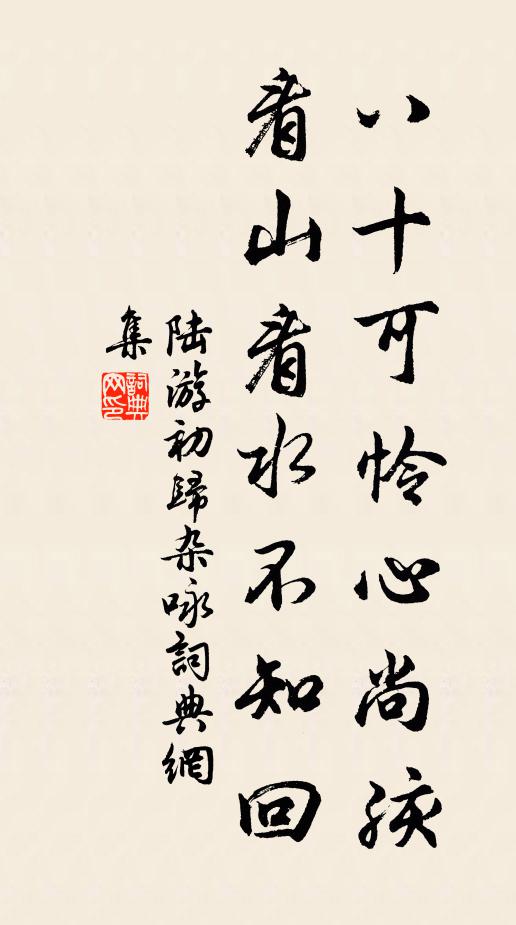 八十可怜心尚孩
看山看水不知回
陆游初歸杂咏詞典網
集
詞典网印